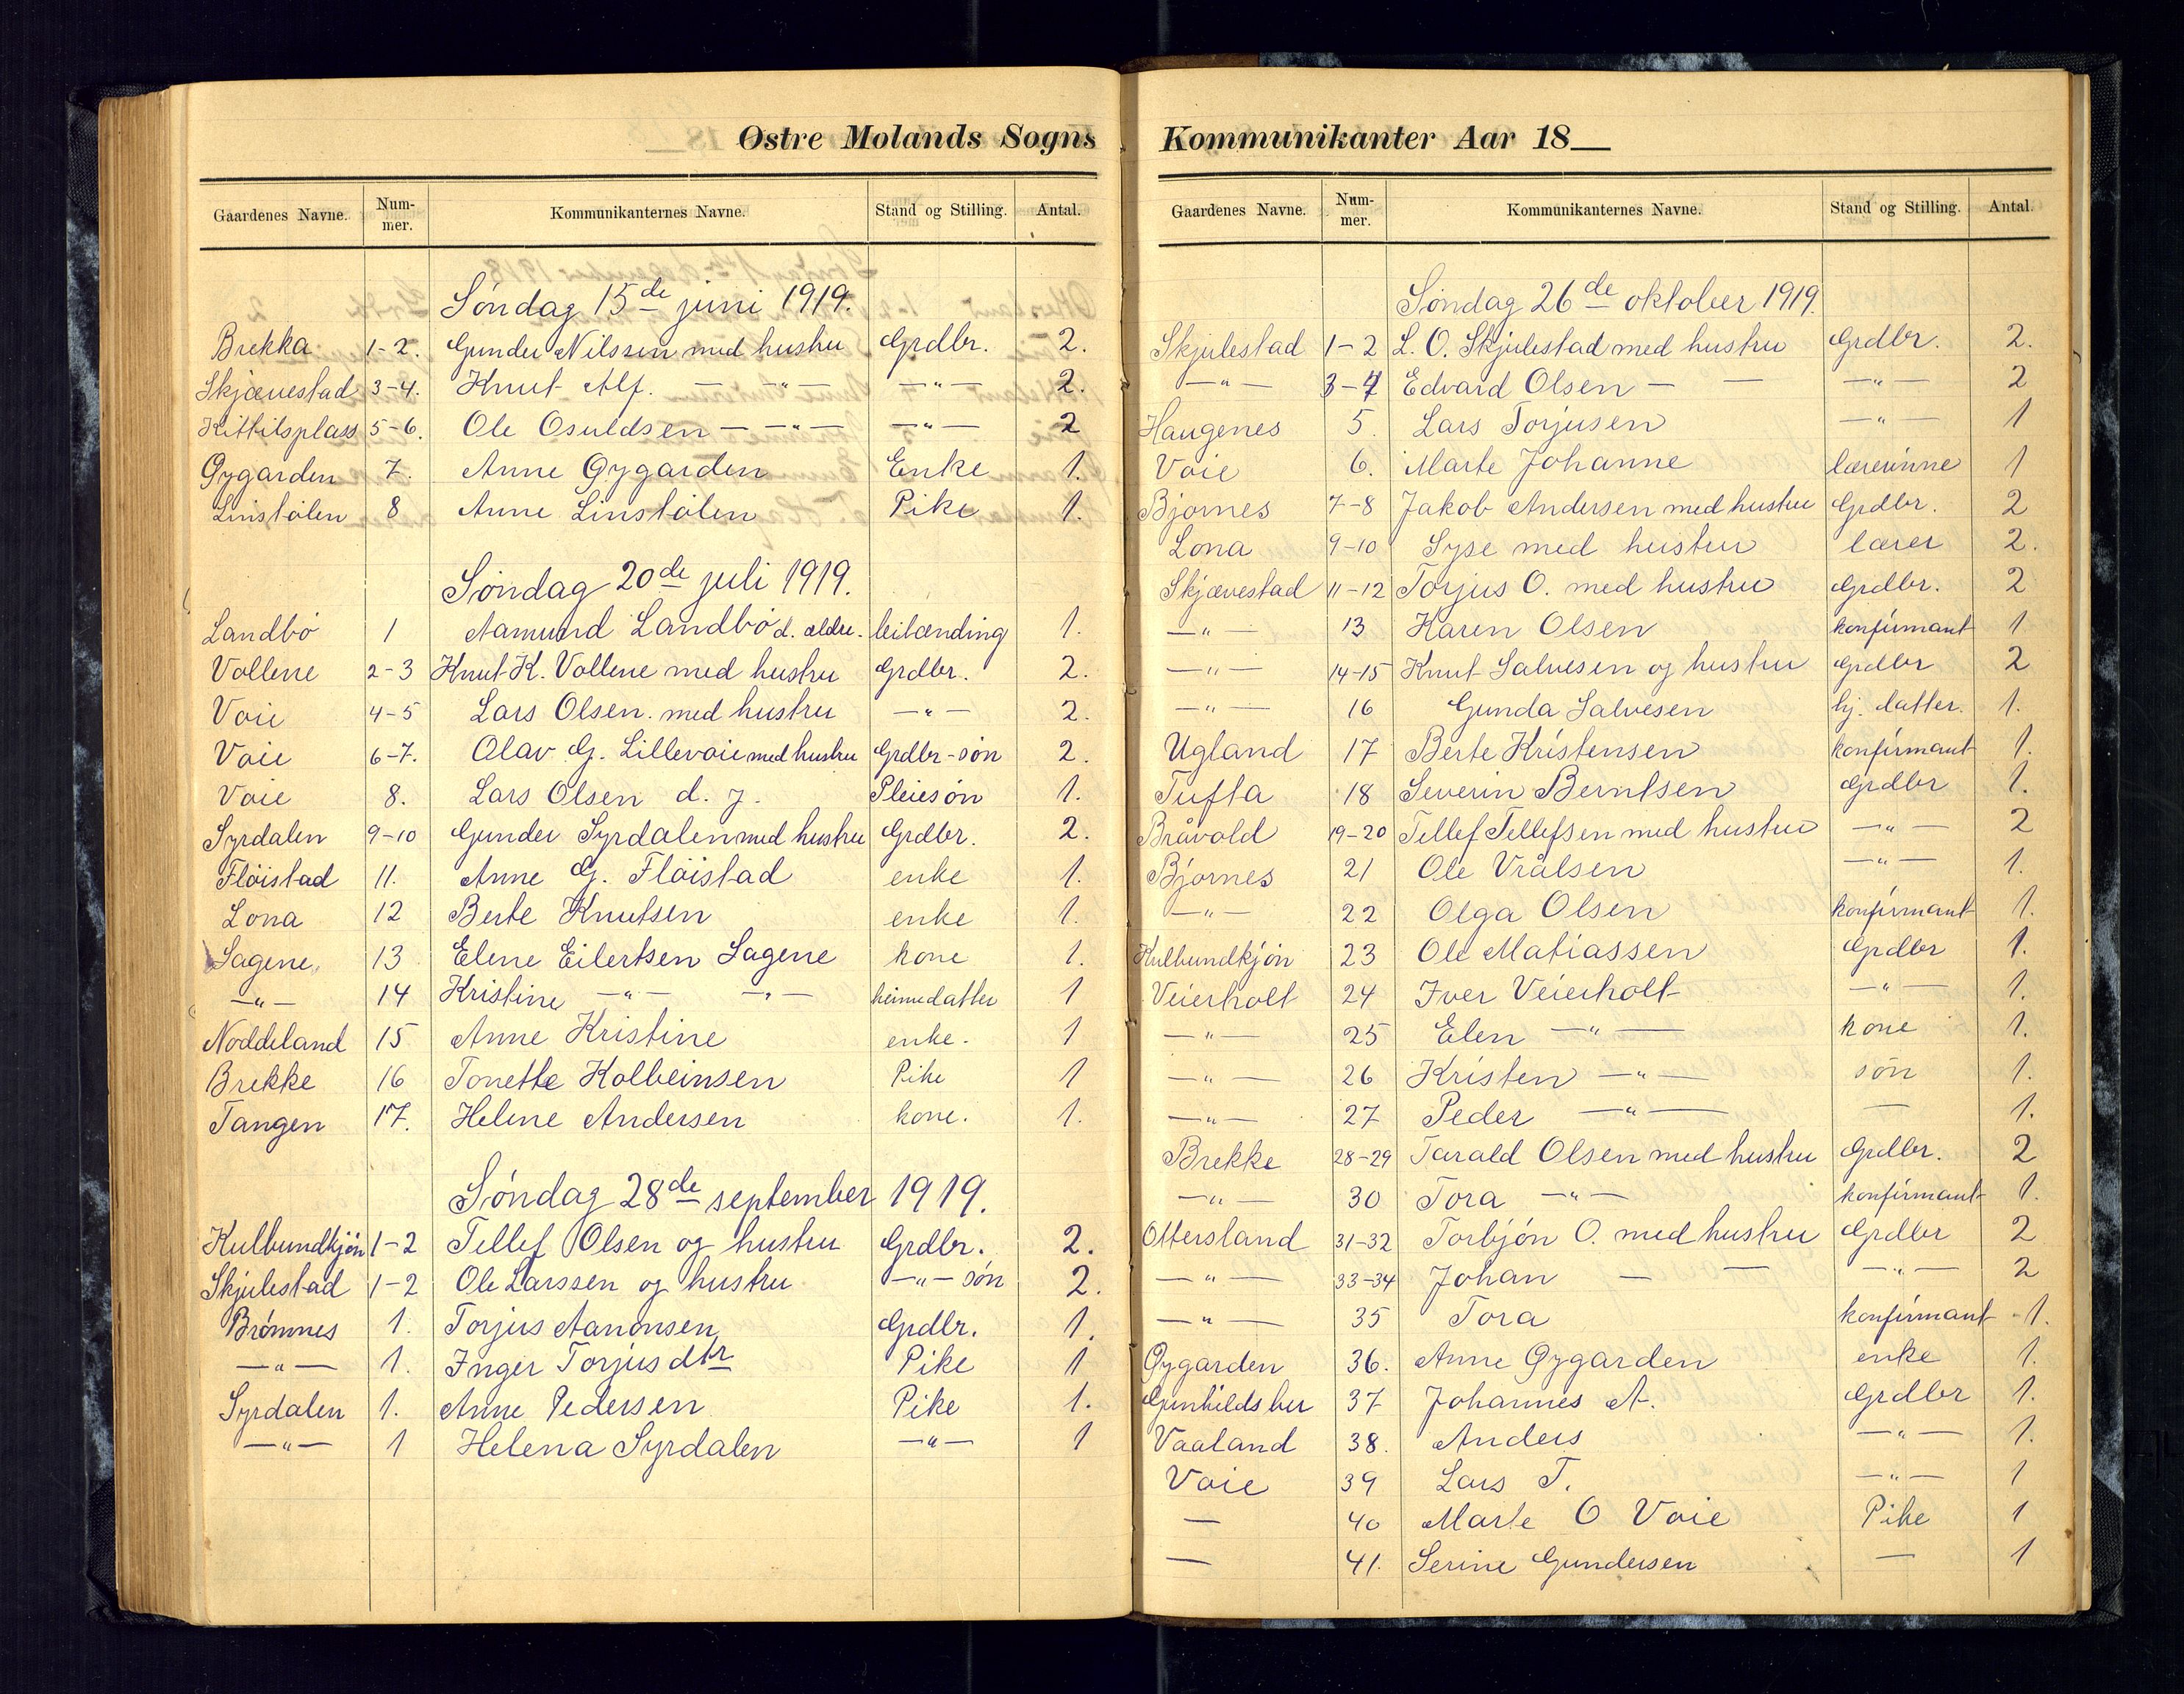 Østre Molands Sogns
Gaardenes Navne. Nummer. Kommunikanternes Navne. Stand og Stilling. Antal.
Søndag 15de juni 1919.
Brekka 1-2. Gunder Nilssen med hustru Grdbr. 2.
Skjævestad 3-4. Knut Alf. — —"— —"— 2.
Kittilsplass 5-6. Ole Osuldsen — —"— —"— 2
Gygarden 7. Anne Gygarden Enke 1.
Linstølen 8 Anne Linstølen Pike 1.
Søndag 20de juli 1919.
Landbø 1 Aamund Landbø d. ældre. leilænding 1.
Vollene 2-3 Knut K. Vollene med hustru Grdbr. 2.
Voie 4-5 Lars Olsen. med hustru —"— 2.
Voie 6-7. Olav G. Lillevoie med hustru Grdbr-søn 2.
Voie 8. Lars Olsen d. y. Pleiesøn 1.
Syrdalen 9-10 Gunder Syrdalen med hustru Grdbr. 2.
Fløistad 11. Anne G. Fløistad enke 1.
Lona 12 Berte Knutsen enke 1.
Sagene 13 Elene Eilertsen Sagene kone 1.
—"— 14 Kristine —"— —"— heimedatter 1
Noddeland 15 Anne Kristine enke. 1
Brekke 16 Tonette Kolbeinsen Pike 1
Tangen 17. Helene Andersen kone. 1.
Søndag 28de september 1919.
Kulbundkjøn 1-2 Tellef Olsen og hustru Grdbr. 2.
Skjulestad 1-2 Ole Larssen og hustru —"— søn 2.
Brømnes 1. Torjus Aanonsen Grdbr. 1.
—"— 1. Inger Torjusdtr Pike 1
Syrdalen 1. Anne Pedersen Pike 1.
—"— 1 Helena Syrdalen —"— 1
Kommunikanter Aar 18__
Gaardenes Navne. Nummer. Kommunikanternes Navne. Stand og Stilling. Antal.
Søndag 26de oktober 1919.
Skjulestad 1-2 L. O. Skjulestad med hustru Grdbr. 2.
—"— 3-4 Edvard Olsen — — —"— 2
Haugenes 5. Lars Torjusen —"— 1
Voie 6. Marte Johanne lærerinne 1
Bjornes 7-8 Jakob Andersen med hustru Grdbr. 2
Lona 9-10 Syse med hustru lærer 2.
Skjævestad 11-12 Torjus O. med hustru Grdbr. 2
—"— 13 Karen Olsen konfirmant 1
—"— 14-15 Knut Salvesen og hustru Grdbr 2
—"— 16 Gunda Salvesen hj. datter. 1.
Ugland 17 Berte Kristensen konfirmant 1.
Tufta 18 Severin Berntsen Grdbr 1.
Bråvold 19-20 Tellef Tellefsen med hustru —"— 2
Bjornes 21 Ole Vrålsen —"— 1.
—"— 22 Olga Olsen konfirmant 1.
Kulbundkjøn 23 Ole Matiassen Grdbr 1.
Veierholt 24 Iver Veierholt —"— 1.
—"— 25 Elen —"— kone 1.
—"— 26 Kristen —"— søn 1.
—"— 27 Peder —"— — 1.
Brekke 28-29 Tarald Olsen med hustru Grdbr. 2
—"— 30 Tora —"— konfirmant 1.
Ottersland 31-32 Torbjøn O. med hustru Grdbr 2
—"— 33-34 Johan — — —"— 2
—"— 35 Tora konfirmant 1.
Gygarden 36. Anne Gygarden enke 1.
37 Johannes A. Grdbr 1.
Vaaland 38. Anders —"— 1.
Voie 39 Lars T. —"— 1
— 40 Marte O Voie Pike 1
— 41. Serine Gundersen — 1